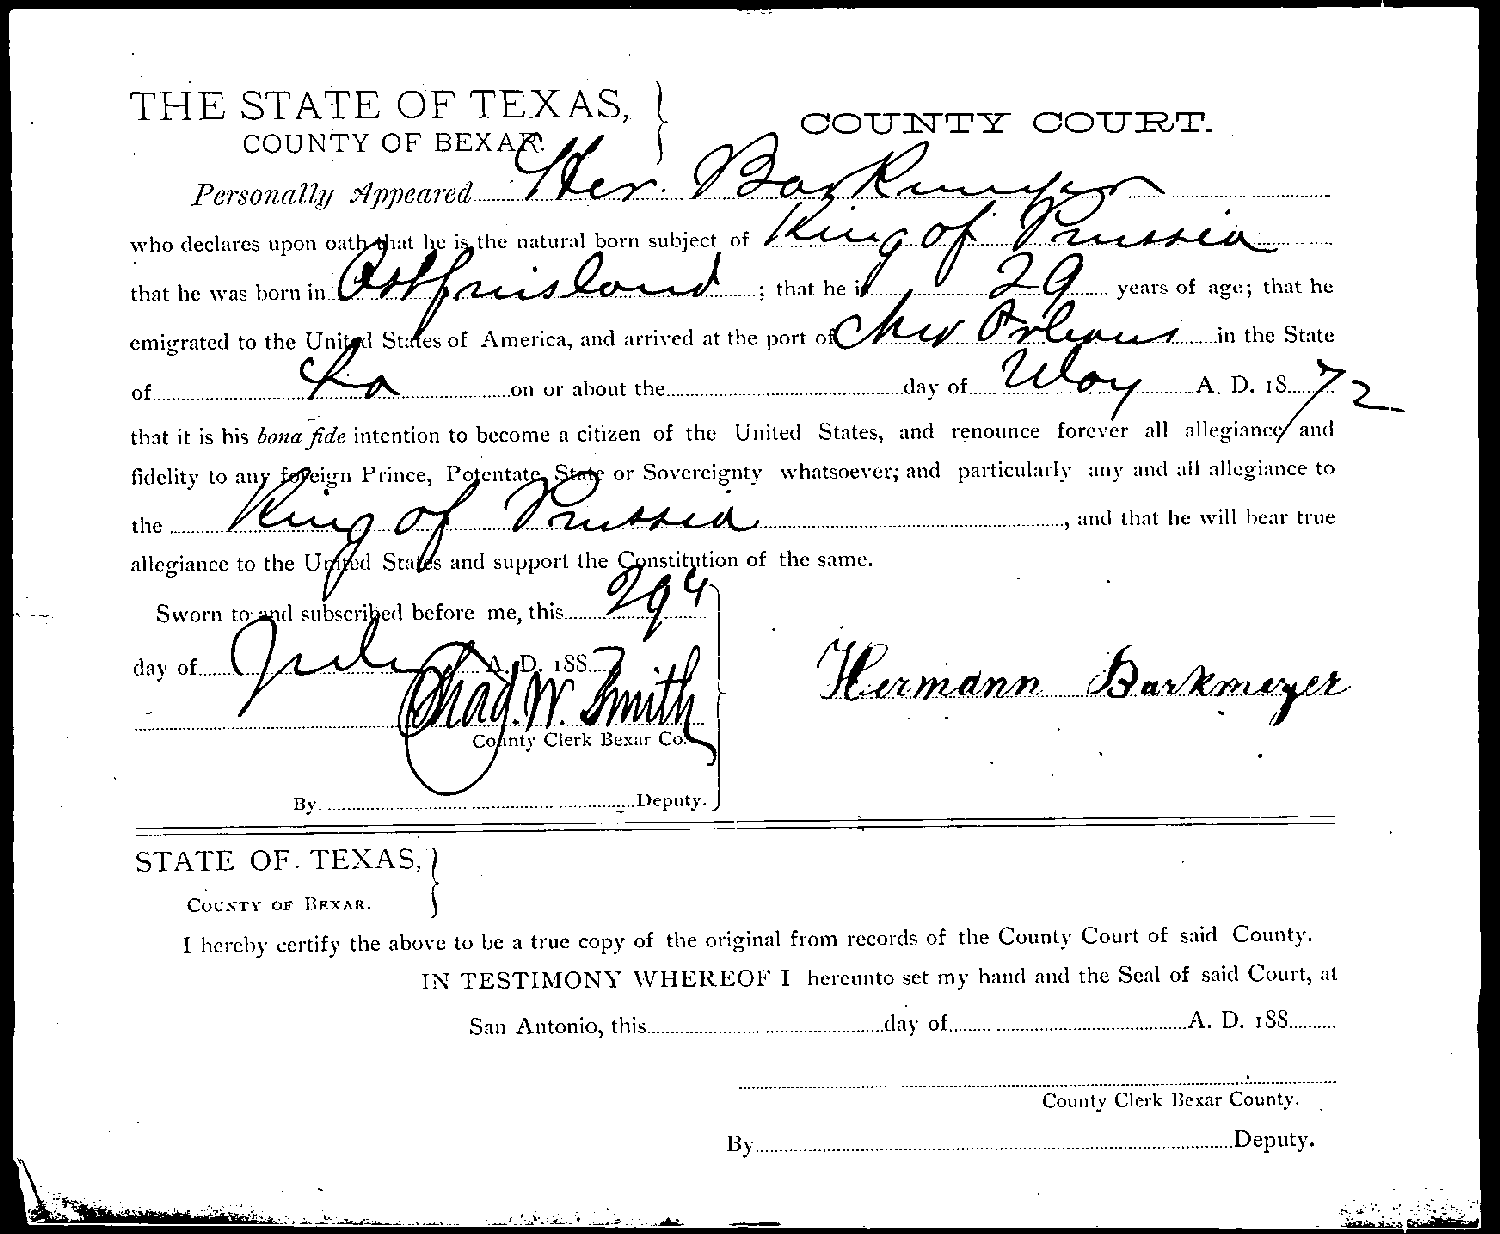 THE STATE OF TEXAS,
COUNTY OF BEXAR.
COUNTY COURT.
Personally Appeared Her. Barkmeyer
who declares upon oath that he is the natural born subject of King of Prussia
that he was born in Ostfriesland ; that he is 29 years of age; that he
emigrated to the United States of America, and arrived at the port of New Orleans in the State
of La on or about the day of May A. D. 1872
that it is his bona fide intention to become a citizen of the United States, and renounce forever all allegiance and
fidelity to any foreign Prince, Potentate, State or Sovereignty whatsoever; and particularly any and all allegiance to
the King of Prussia , and that he will bear true
allegiance to the United States and support the Constitution of the same.
Sworn to and subscribed before me, this 29
day of July A. D. 188
Hermann Barkmeyer
Thad. W. Smith
County Clerk Bexar Co.
By Deputy.
STATE OF TEXAS,
COUNTY OF BEXAR.
I hereby certify the above to be a true copy of the original from records of the County Court of said County.
IN TESTIMONY WHEREOF I hereunto set my hand and the Seal of said Court, at
San Antonio, this day of A. D. 188
County Clerk Bexar County.
By Deputy.